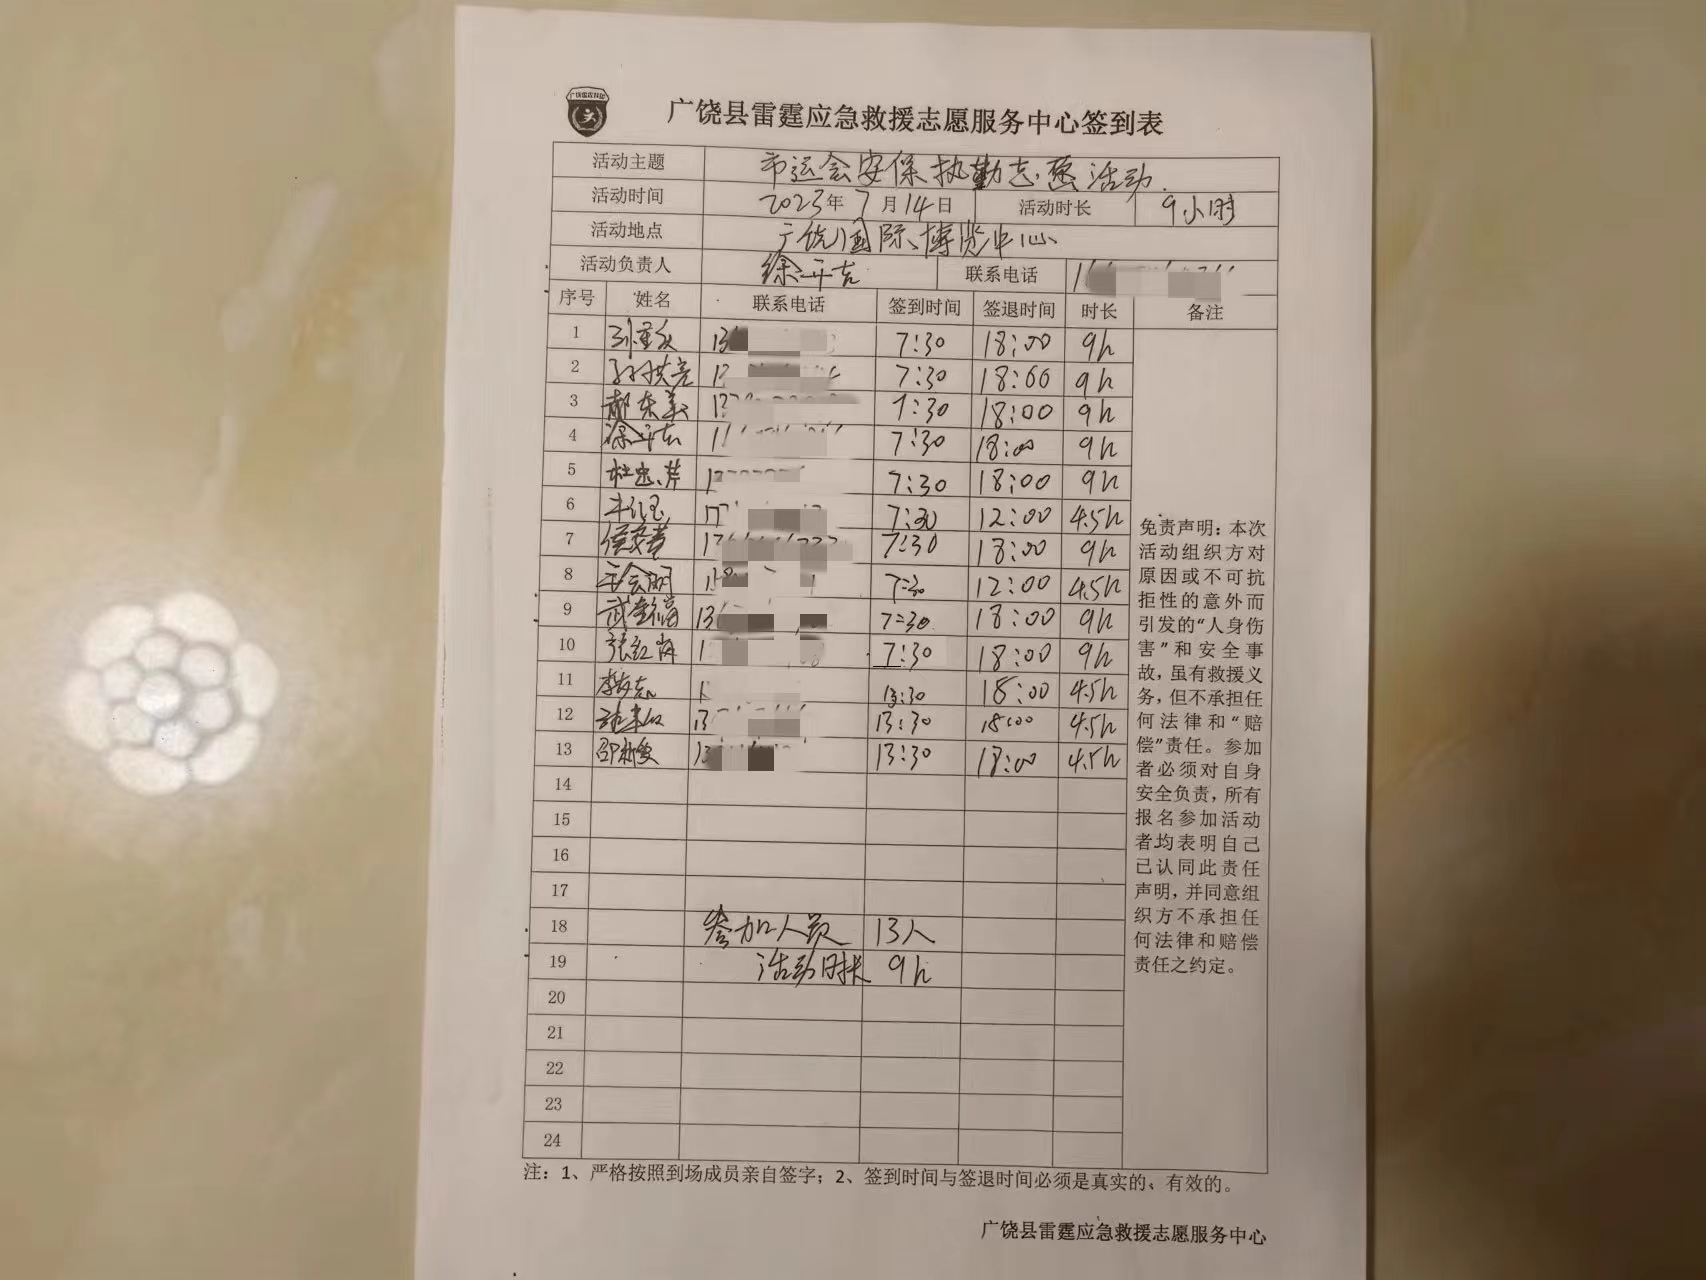 广饶县雷霆应急救援志愿服务中心签到表
活动主题 市运会安保执勤志愿活动.
活动时间 2023年7月14日 活动时长 9小时
活动地点 广饶国际博览中心
活动负责人 联系电话
序号 姓名 联系电话 签到时间 签退时间 时长 备注
1 7:30 18:00 9h
2 7:30 18:00 9h
3 7:30 18:00 9h
4 7:30 18:00 9h
5 7:30 18:00 9h
6 7:30 12:00 4.5h
7 7:30 18:00 9h
8 7:30 12:00 4.5h
9 7:30 18:00 9h
10 张红海 7:30 18:00 9h
11 13:30 18:00 4.5h
12 13:30 18:00 4.5h
13 13:30 18:00 4.5h
14
15
16
17
18 参加人员 13人
19 活动时长 9h
20
21
22
23
24
免责声明：本次
活动组织方对
原因或不可抗
拒性的意外而
引发的“人身伤
害”和安全事
故，虽有救援义
务，但不承担任
何法律和“赔
偿”责任。参加
者必须对自身
安全负责，所有
报名参加活动
者均表明自己
已认同此责任
声明，并同意组
织方不承担任
何法律和赔偿
责任之约定。
注：1、严格按照到场成员亲自签字；2、签到时间与签退时间必须是真实的、有效的。
广饶县雷霆应急救援志愿服务中心